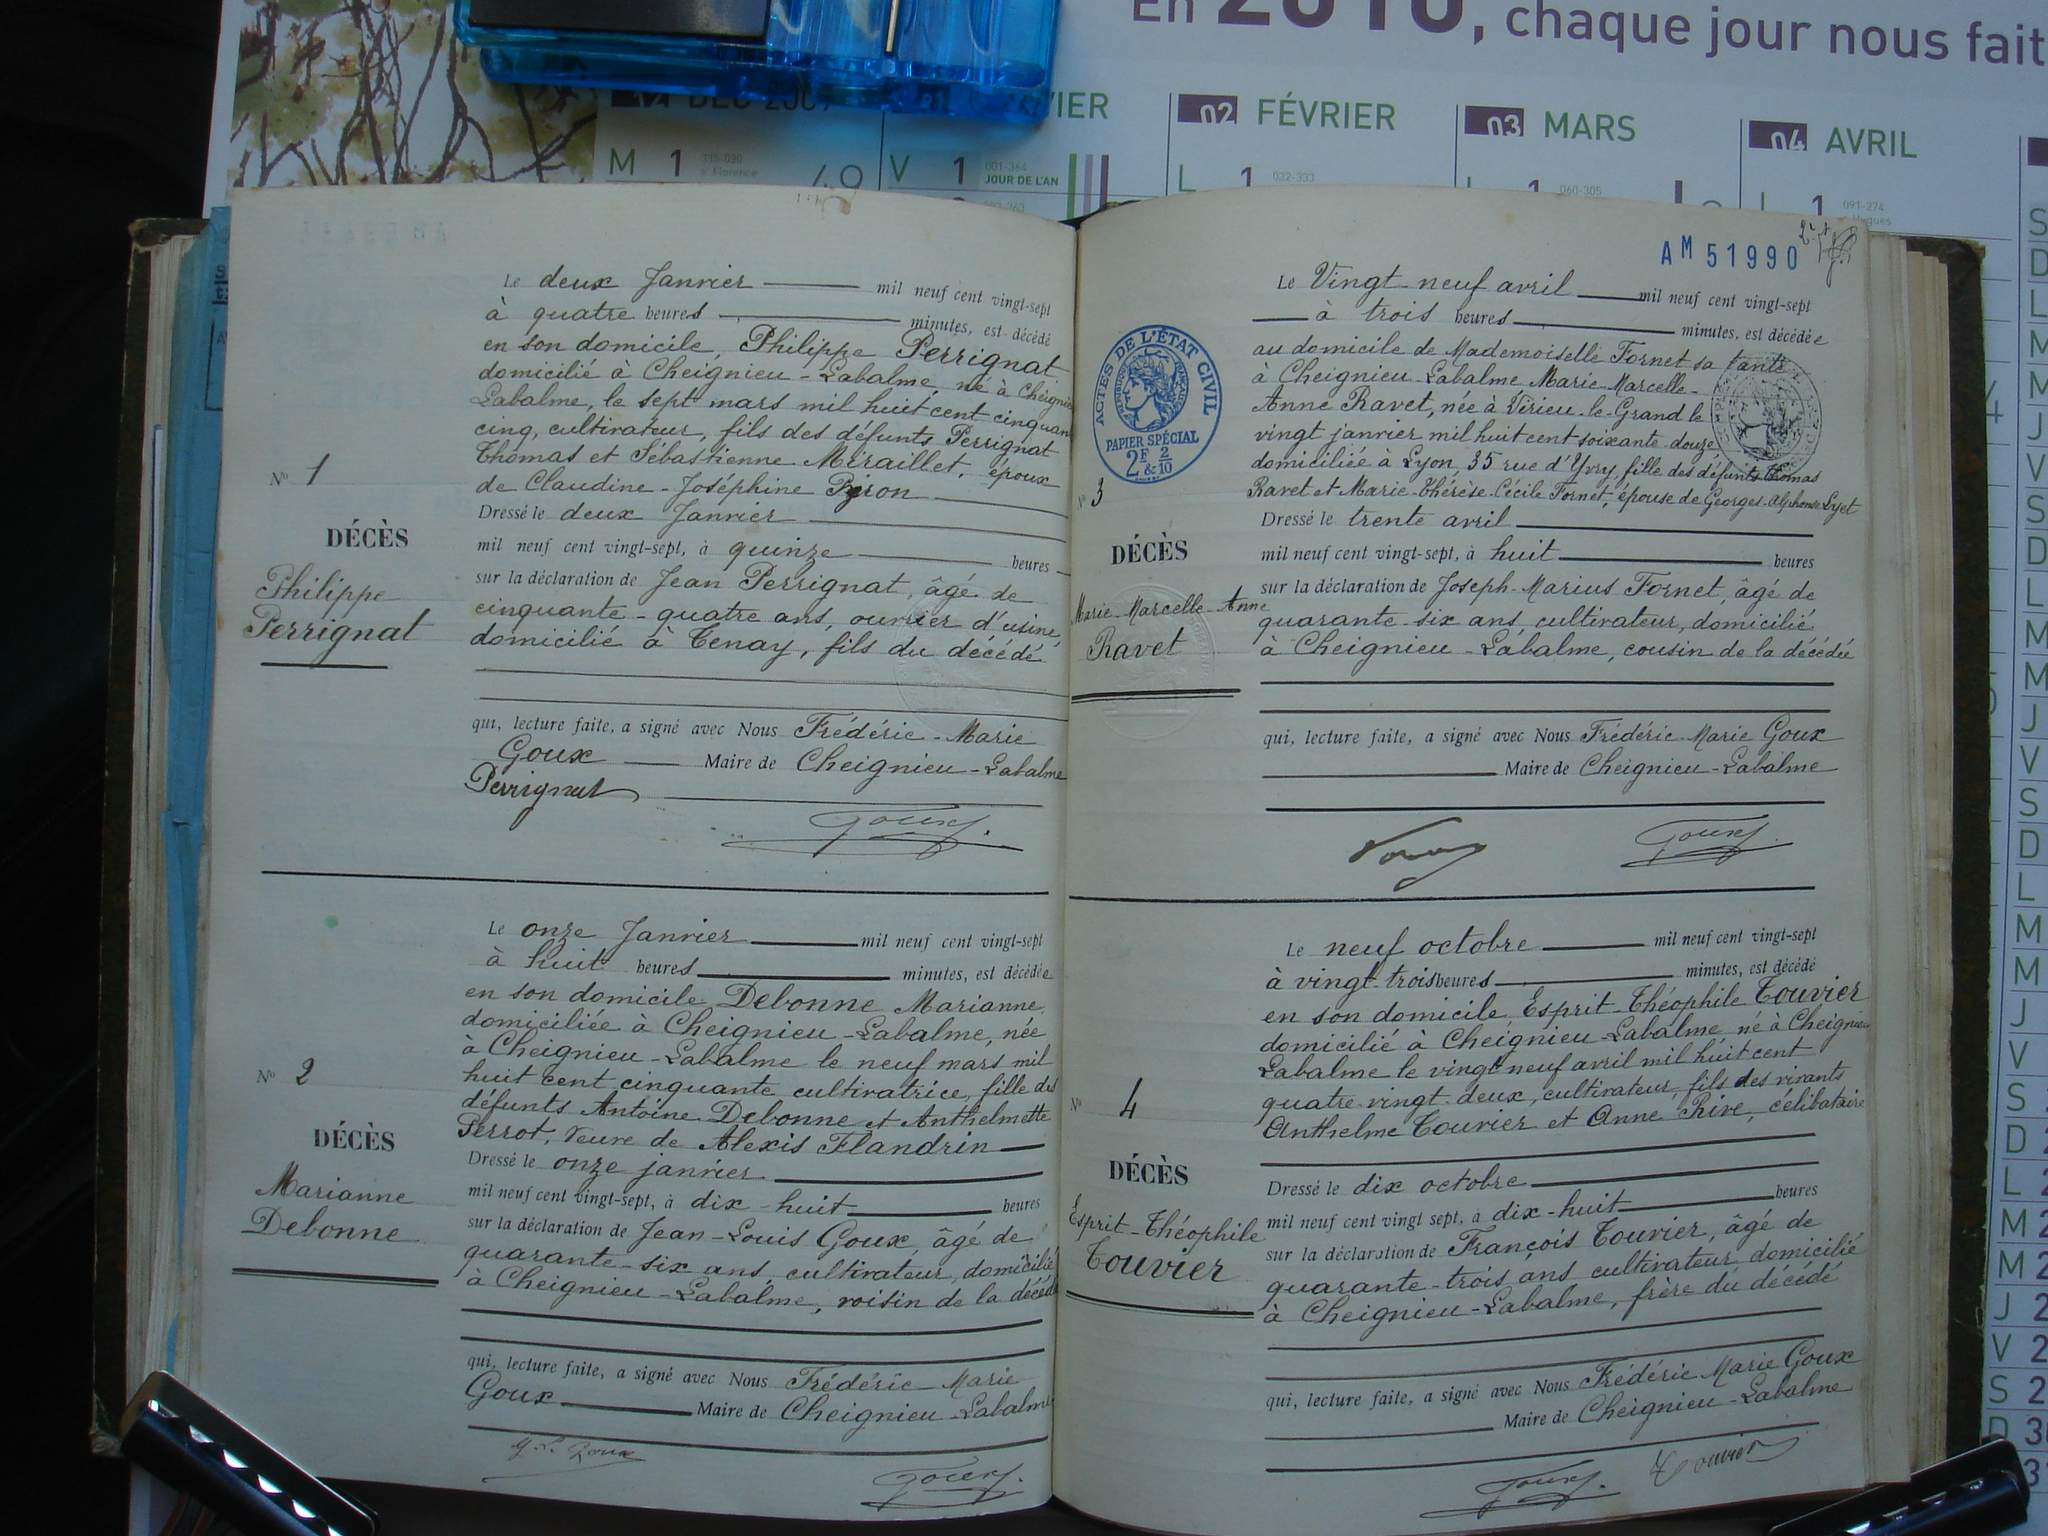 En 2010, chaque jour nous fait
DÉC 2009
VIER
02 FÉVRIER
03 MARS
04 AVRIL
M 1
49
V 1 001-364
JOUR DE L'AN
L 1 032-333
1 060-305
1 091-274
Le deux Janvier mil neuf cent vingt-sept
à quatre heures minutes, est décédé
en son domicile, Philippe Perrignat
domicilié à Cheignieu-Labalme, né à Cheignieu
Labalme, le sept mars mil huit cent cinquan
cinq, cultivateur, fils des défunts Perrignat
Thomas et Sébastienne Méraillet, époux
de Claudine-Joséphine Pyron
N° 1
DÉCÈS
Philippe
Perrignat
Dressé le deux Janvier
mil neuf cent vingt-sept, à quinze heures
sur la déclaration de Jean Perrignat, âgé de
cinquante-quatre ans, ouvrier d'usine,
domicilié à Tenay, fils du décédé
qui, lecture faite, a signé avec Nous Frédéric-Marie
Goux Maire de Cheignieu-Labalme
Perrignat
Goux
Le onze Janvier mil neuf cent vingt-sept
à huit heures minutes, est décédée
en son domicile Debonne Marianne,
domiciliée à Cheignieu-Labalme, née
à Cheignieu-Labalme le neuf mars mil
huit cent cinquante cultivatrice, fille des
défunts Antoine Debonne et Anthelmette
Perrot, veuve de Alexis Flandrin
N° 2
DÉCÈS
Marianne
Debonne
Dressé le onze janvier
mil neuf cent vingt-sept, à dix-huit heures
sur la déclaration de Jean-Louis Goux, âgé de
quarante-six ans, cultivateur, domicilié
à Cheignieu-Labalme, voisin de la décédé
qui, lecture faite, a signé avec Nous Frédéric-Marie
Goux Maire de Cheignieu-Labalme
Goux
Goux
AM 51990
ACTES DE L'ÉTAT CIVIL
PAPIER SPÉCIAL
2F & 2/10
Le Vingt-neuf avril mil neuf cent vingt-sept
à trois heures minutes, est décédée
au domicile de Mademoiselle Fornet sa tante
à Cheignieu-Labalme Marie-Marcelle-
Anne Ravet, née à Virieu-le-Grand le
vingt janvier mil huit cent soixante-douze
domiciliée à Lyon, 35 rue d'Yvry, fille des défunts Thomas
Ravet et Marie-Thérèse-Cécile Fornet, épouse de Georges-Alphonse Lyet
N° 3
DÉCÈS
Marie-Marcelle-Anne
Ravet
Dressé le trente avril
mil neuf cent vingt-sept, à huit heures
sur la déclaration de Joseph-Marius Fornet, âgé de
quarante-six ans, cultivateur, domicilié
à Cheignieu-Labalme, cousin de la décédée
qui, lecture faite, a signé avec Nous Frédéric Marie Goux
Maire de Cheignieu-Labalme
Goux
Le neuf octobre mil neuf cent vingt-sept
à vingt-trois heures minutes, est décédé
en son domicile Esprit-Théophile Touvier
domicilié à Cheignieu-Labalme né à Cheignieu
Labalme le vingt neuf avril mil huit cent
quatre-vingt-deux, cultivateur, fils des vivants
Anthelme Touvier et Anne Rive, célibataire
N° 4
DÉCÈS
Esprit-Théophile
Touvier
Dressé le dix octobre
mil neuf cent vingt sept, à dix-huit heures
sur la déclaration de François Touvier, âgé de
quarante-trois ans cultivateur, domicilié
à Cheignieu-Labalme, frère du décédé
qui, lecture faite, a signé avec Nous Frédéric Marie Goux
Maire de Cheignieu-Labalme
Goux
Touvier